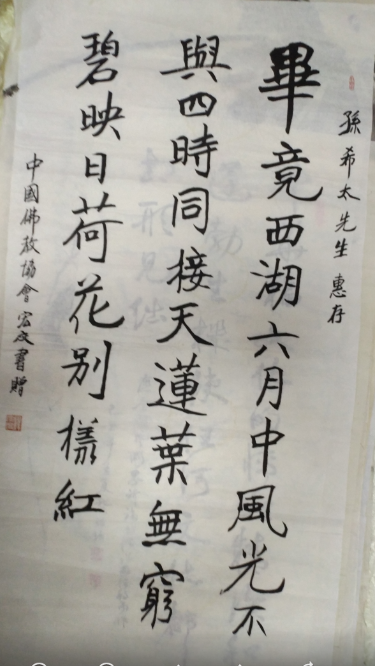 孫希太先生惠存
畢竟西湖六月中風光不
與四時同接天蓮葉無窮
碧映日荷花别樣紅
中國佛教協會宏度書贈